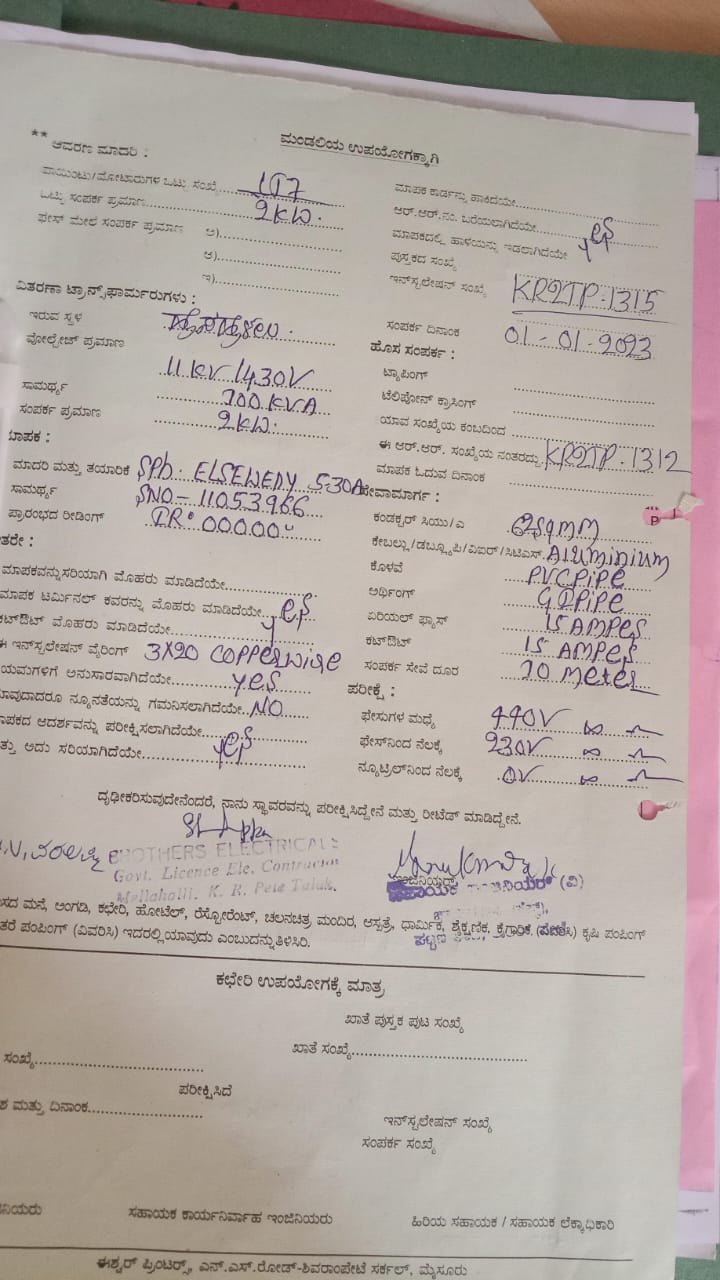 ಮಂಡಲಿಯ ಉಪಯೋಗಕ್ಕಾಗಿ
** ಆವರಣ ಮಾದರಿ :
ಪಾಯಿಂಟು/ಮೋಟಾರುಗಳ ಒಟ್ಟು ಸಂಖ್ಯೆ
ಒಟ್ಟು ಸಂಪರ್ಕ ಪ್ರಮಾಣ 2KW.
ಫೇಸ್ ಮೇಲೆ ಸಂಪರ್ಕ ಪ್ರಮಾಣ ಅ)
ಆ)
ಇ)
ವಿತರಣಾ ಟ್ರಾನ್ಸ್‌ಫಾರ್ಮರುಗಳು :
ಇರುವ ಸ್ಥಳ
ವೋಲ್ಟೇಜ್ ಪ್ರಮಾಣ 11KV/430V
ಸಾಮರ್ಥ್ಯ 100KVA
ಸಂಪರ್ಕ ಪ್ರಮಾಣ 2KW.
ಮಾಪಕ :
ಮಾದರಿ ಮತ್ತು ತಯಾರಿಕೆ ELSEWEDY 5-30A
ಸಾಮರ್ಥ್ಯ SNO- 11053966
ಪ್ರಾರಂಭದ ರೀಡಿಂಗ್ IR. 00000
ಇತರೇ :
ಮಾಪಕವನ್ನು ಸರಿಯಾಗಿ ಮೊಹರು ಮಾಡಿದೆಯೇ
ಮಾಪಕ ಟರ್ಮಿನಲ್ ಕವರನ್ನು ಮೊಹರು ಮಾಡಿದೆಯೇ
ಕಟ್‌ಔಟ್ ಮೊಹರು ಮಾಡಿದೆಯೇ yes
ಈ ಇನ್‌ಸ್ಟಲೇಷನ್ ವೈರಿಂಗ್ 3X20 COPPERWIRE
ನಿಯಮಗಳಿಗೆ ಅನುಸಾರವಾಗಿದೆಯೇ yes
ಯಾವುದಾದರೂ ನ್ಯೂನತೆಯನ್ನು ಗಮನಿಸಲಾಗಿದೆಯೇ NO
ಮಾಪಕದ ಆದರ್ಶವನ್ನು ಪರೀಕ್ಷಿಸಲಾಗಿದೆಯೇ
ಮತ್ತು ಅದು ಸರಿಯಾಗಿದೆಯೇ yes
ಮಾಪಕ ಕಾರ್ಡನ್ನು ಹಾಕಿದೆಯೇ
ಆರ್.ಆರ್.ನಂ. ಬರೆಯಲಾಗಿದೆಯೇ
ಮಾಪಕದಲ್ಲಿ ಹಾಳೆಯನ್ನು ಇಡಲಾಗಿದೆಯೇ yes
ಪುಸ್ತಕದ ಸಂಖ್ಯೆ
ಇನ್‌ಸ್ಟಲೇಷನ್ ಸಂಖ್ಯೆ KR2TP-1315
ಸಂಪರ್ಕ ದಿನಾಂಕ 01-01-2023
ಹೊಸ ಸಂಪರ್ಕ :
ಟ್ಯಾಪಿಂಗ್
ಟೆಲಿಪೋನ್ ಕ್ರಾಸಿಂಗ್
ಯಾವ ಸಂಖ್ಯೆಯ ಕಂಬದಿಂದ
ಈ ಆರ್.ಆರ್. ಸಂಖ್ಯೆಯ ನಂತರದ್ದು KR2TP-1312
ಮಾಪಕ ಓದುವ ದಿನಾಂಕ
ಸೇವಾಮಾರ್ಗ :
ಕಂಡಕ್ಟರ್ ಸಿಯು/ಎ
ಕೇಬಲ್ಲು/ಡಬ್ಲ್ಯೂಪಿ/ಎಐರ್/ಸಿಟಿಎಸ್. Aluminium
ಕೊಳವೆ PVCPiPe
ಅರ್ಥಿಂಗ್ GIPiPe
ಏರಿಯಲ್ ಫ್ಯೂಸ್ 15 AMPes
ಕಟ್‌ಔಟ್ 15 AMPes
ಸಂಪರ್ಕ ಸೇವೆ ದೂರ 10 Meter
ಪರೀಕ್ಷೆ :
ಫೇಸುಗಳ ಮಧ್ಯೆ 440V
ಫೇಸ್‌ನಿಂದ ನೆಲಕ್ಕೆ 230V
ನ್ಯೂಟ್ರಲ್‌ನಿಂದ ನೆಲಕ್ಕೆ 0V
ದೃಢೀಕರಿಸುವುದೇನೆಂದರೆ, ನಾನು ಸ್ಥಾವರವನ್ನು ಪರೀಕ್ಷಿಸಿದ್ದೇನೆ ಮತ್ತು ರೀಟೆಡ್ ಮಾಡಿದ್ದೇನೆ.
BROTHERS ELECTRICALS
Govt. Licence Ele. Contractor
Mallaholli. K. R. Pete Taluk.
ವಾಸದ ಮನೆ, ಅಂಗಡಿ, ಕಛೇರಿ, ಹೋಟೆಲ್, ರೆಸ್ಟೋರೆಂಟ್, ಚಲನಚಿತ್ರ ಮಂದಿರ, ಆಸ್ಪತ್ರೆ, ಧಾರ್ಮಿಕ, ಶೈಕ್ಷಣಿಕ, ಕೈಗಾರಿಕೆ, ಕೃಷಿ ಪಂಪಿಂಗ್
ಇತರೆ ಪಂಪಿಂಗ್ (ವಿವರಿಸಿ) ಇದರಲ್ಲಿ ಯಾವುದು ಎಂಬುದನ್ನು ತಿಳಿಸಿರಿ.
ಕಛೇರಿ ಉಪಯೋಗಕ್ಕೆ ಮಾತ್ರ
ಖಾತೆ ಪುಸ್ತಕ ಪುಟ ಸಂಖ್ಯೆ
ಖಾತೆ ಸಂಖ್ಯೆ
ಸಂಖ್ಯೆ
ಪರೀಕ್ಷಿಸಿದೆ
ಮತ್ತು ದಿನಾಂಕ
ಇನ್‌ಸ್ಟಲೇಷನ್ ಸಂಖ್ಯೆ
ಸಂಪರ್ಕ ಸಂಖ್ಯೆ
ಸಹಾಯಕ ಕಾರ್ಯನಿರ್ವಾಹ ಇಂಜಿನಿಯರು
ಹಿರಿಯ ಸಹಾಯಕ / ಸಹಾಯಕ ಲೆಕ್ಕಾಧಿಕಾರಿ
ಈಶ್ವರ್ ಪ್ರಿಂಟರ್ಸ್, ಎನ್.ಎಸ್.ರೋಡ್-ಶಿವರಾಂಪೇಟೆ ಸರ್ಕಲ್, ಮೈಸೂರು